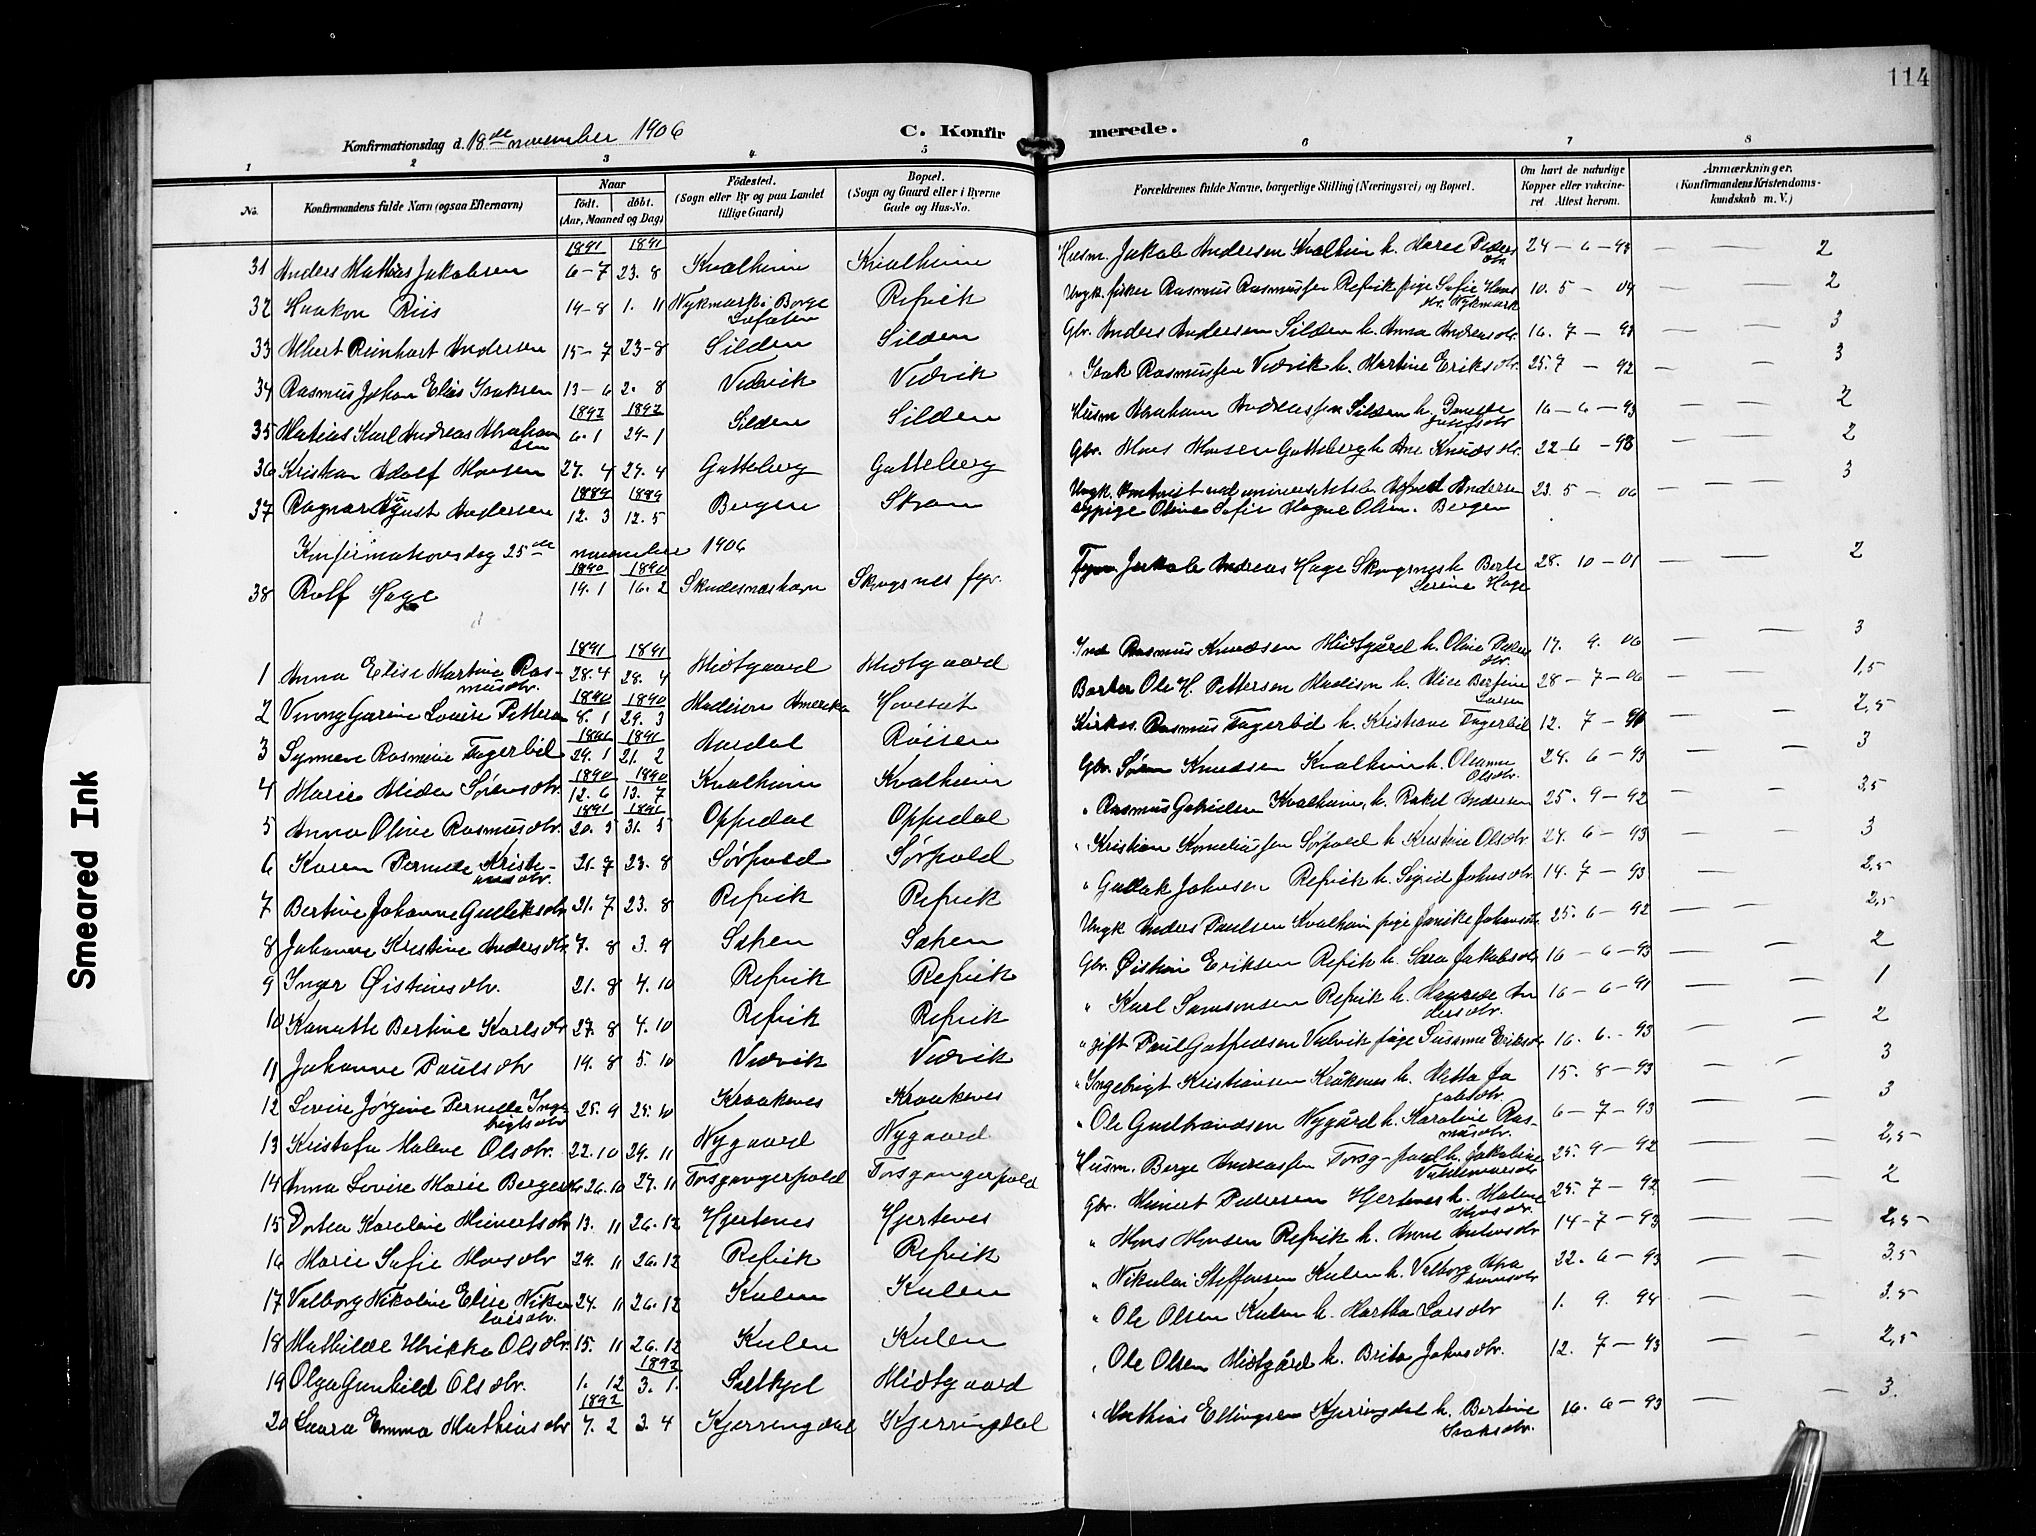 114
Konfirmationsdag d. 18de november 1906
C. Konfirmerede.
1 2 3 4 5 6 7 8
No.
Konfirmandens fulde Navn (ogsaa Efternavn)
Naar
födt. döbt.
(Aar, Maaned og Dag)
Födested.
(Sogn eller By og paa Landet
tillige Gaard)
Bopæl.
(Sogn og Gaard eller i Byerne
Gade og Hus-No.
Forældrenes fulde Navne, borgerlige Stilling (Næringsvei) og Bopæl.
Om havt de naturlige
Kopper eller vaccine-
ret Attest herom.
Anmærkninger.
(Konfirmandens Kristendoms-
kundskab m. V.)
1891 1891
31 Anders Mathias Jakobsen 6-7 23.8 Kvalheim Kvalheim Husm. Jakob Andersen Kvalheim h. Maree Pedersdr. 24-6-93 — — 2
32 Haakon Riis 14-8 1.11 Nykmark i Borge Lofoten Refvik Ungk. fisker Rasmus Rasmussen Refvik pige Sofie Hansdr. Nykmark 10.5-04 — — 2
33 Albert Reinhart Andersen 15-7 23-8 Silden Silden Gbr. Anders Andersen Silden h. Anna Andreasdr. 16.7-93 — — 3
34 Rasmus Johan Elias Isaksen 13-6 2.8 Vedvik Vedvik " Isak Rasmussen Vedvik h. Martine Eriksdr. 25.9-92 — — 3
1892 1892
35 Matias Karl Andreas Abrahamsen 6.1 24-1 Silden Silden Husm Abraham Andreassen Silden h. Josefsdr 16-6-93 — — 2
36 Kristian Adolf Hansen 27.4 24.4 Gotteberg Gotteberg Gbr. Hans Hansen Gotteberg h Ane Knudsdr. 22-6-93 — — 2
1889 1889
37 Ragnar August Andersen 12.3 12.5 Bergen Skram Ungk. ved universitetsb. Alfred Andersen 23.5-06 — — 3
sypige Oline Sofie Olsen. Bergen
Konfirmationsdag 25de november 1906
1890 1890
38 Rolf Hage 19.1 16.2 Skudesneshavn Skongsnes fyr. Jakob Andreas Hage Skongsnes h Berte Serine Hage 28.10-01 — — 2
1891 1891
1 Anna Elise Martine Rasmusdr. 28.4 28.4 Midtgaard Midtgaard Ind Rasmus Knudsen Midtgård h. Oline Pedersdr. 17.9.06 — — 3
1890 1890
2 Garine Louise Pettersen 8.1 29.3 Madison Amerika Hovesæt Ole H. Pettersen Madison h. Alice Bertine Larsen 28-7-06 — — 1,5
1891 1891
3 Synneve Rasmine Fagerbil 29.1 21.2 Aardal Röisen Kirkes. Rasmus Fagerbil h. Kristiane Fagerbil 12.7-91 — — 2,5
1890 1890
4 Marie Alida Sörensdr. 12.6 13.7 Kvalheim Kvalheim Gbr. Sören Knudsen Kvalheim h. Oleanne Olsdr. 24.6-93 — — 3
1891 1891
5 Anna Oline Rasmusdr. 20.5 31.5 Oppedal Oppedal " Rasmus Kvalheim, h. Rakel Andersen 25.9-92 — — 3,5
6 Karen Pernede Kristiansdr. 21.7 23.8 Sørpold Sørpold " Kristian Korneliussen Sørpold h Kristine Olsdr 24.6-93 — — 3
7 Bertine Johanne Gulleksdr. 21.7 23.8 Refvik Refvik " Gullak Johnsen Refvik h. Sigrid Johnsdr. 14.7-93 — — 2,5
8 Johanne Kristine Andersdr. 7.8 3.9 Sætren Sætren Ungk Anders Paulsen Kvalheim pige Janike Johansdr 25.6-92 — — 2,5
9 Inger Øistinsdr. 21.8 4.10 Refvik Refvik Gbr. Øistein Eriksen Refvik h. Sara Jakobsdr 16-6-93 — — 2
10 Kanutte Bertine Karlsdr 27.8 4.10 Refvik Refvik " Karl Samsonsen Refvik h. Andersdr. 16-6-91 — — 1
11 Johanne Paulsdr 19.8 5.10 Vedvik Vedvik " gift Paul Gotfredsen Vedvik pige Susanne Eriksdr 16.6.-93 — — 2
12 Lovise Jørgine Pernelle Ingebrigtsdr 25.9 25.10 Kraakenes Kraakenes " Ingebrigt Kristiansen Kråkenes h. Metta Jakobsdr. 15.8-93 — — 3
13 Kristofa Malene Olsdr. 22.10 29.11 Nygaard Nygaard " Ole Gudbrandsen Nygård h. Karoline Rasmusdr. 6-7-93 — — 3
14 Anna Lovise Marie Bergesdr 26.10 27.11 Torsgangerpold Torsgangerpold Husm. Berge Andreassen Torsg-pold h. Jakobine Valdemarsdr 25.9-92 — — 2,5
15 Dortea Karoline Meinertsdr 13.11 26.12 Hjertenes Hjertenes Gbr. Meinert Pedersen Hjertenes h. Malene Hansdr. 25.7-92 — — 2
16 Marie Sofie Hansdr 29.11 26.12 Refvik Refvik " Hans Hansen Refvik h. Anne Antonsdr 14-7-93 — — 2,5
17 Valborg Nikoline Elise Nikolaisdr. 24.11 26.12 Kulen Kulen " Nikolai Steffensen Kulen h. Valborg Abrahamsdr 22.6-93 — — 3,5
18 Mathilde Ulrikke Olsdr. 15.11 26.12 Kulen Kulen " Ole Olsen Kulen h. Martha Larsdr 1.9.94 — — 3.5
1892
19 Olga Gunhild Olsdr. 1.12 3.1. Saltkjel Midtgaard " Ole Olsen Midtgård h. Brita Johnsdr. 12.7-93 — — 2,5
1892
20 Laura Emma Mathiasdr 7.2 3.4 Kjerringdal Kjerringdal " Mathias Ellingsen Kjerringdal h. Bertine Isaksdr. 16.6-93 — — 3.
Smeared Ink